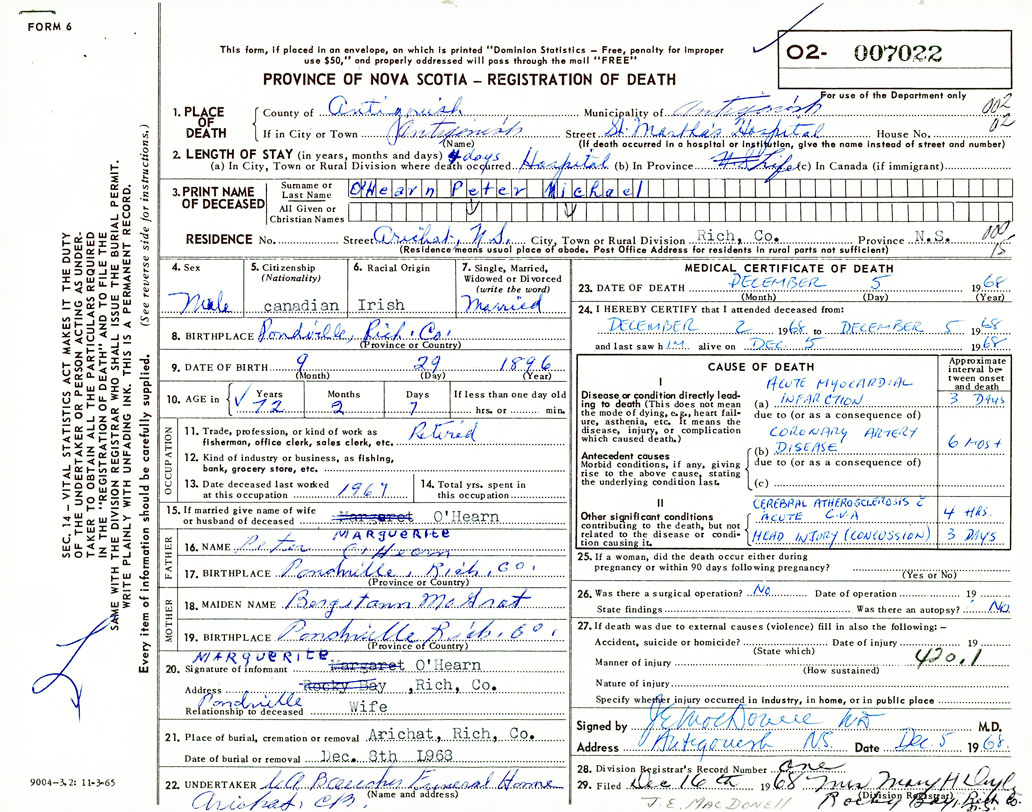 FORM 6
This form, if placed in an envelope, on which is printed "Dominion Statistics – Free, penalty for improper
use $50," and properly addressed will pass through the mail "FREE"
PROVINCE OF NOVA SCOTIA – REGISTRATION OF DEATH
O2- 007022
For use of the Department only
002
02
1. PLACE OF DEATH
County of Antigonish Municipality of Antigonish
If in City or Town Antigonish Street St. Martha's Hospital House No.
(Name) (If death occurred in a hospital or institution, give the name instead of street and number)
2. LENGTH OF STAY (in years, months and days) 4 days Hospital
(a) In City, Town or Rural Division where death occurred (b) In Province Life (c) In Canada (if immigrant)
3. PRINT NAME OF DECEASED
Surname or Last Name O'Hearn Peter Michael
All Given or Christian Names
RESIDENCE No. Street Arichat, N.S. City, Town or Rural Division Rich, Co. Province N.S.
(Residence means usual place of abode. Post Office Address for residents in rural parts not sufficient)
15
4. Sex Male
5. Citizenship (Nationality) canadian
6. Racial Origin Irish
7. Single, Married, Widowed or Divorced (write the word) Married
8. BIRTHPLACE Pondville, Rich. Co.
(Province or Country)
9. DATE OF BIRTH 9 29 1896
(Month) (Day) (Year)
10. AGE in Years 72 Months 2 Days 7 If less than one day old hrs. or min.
OCCUPATION
11. Trade, profession, or kind of work as fisherman, office clerk, sales clerk, etc. Retired
12. Kind of industry or business, as fishing, bank, grocery store, etc.
13. Date deceased last worked at this occupation 1967
14. Total yrs. spent in this occupation
15. If married give name of wife or husband of deceased Margaret O'Hearn
MARGUERITE
FATHER
16. NAME Peter O'Hearn
17. BIRTHPLACE Pondville, Rich, Co,
(Province or Country)
MOTHER
18. MAIDEN NAME
19. BIRTHPLACE Pondville Rich, Co,
(Province or Country)
MARGUERITE
20. Signature of informant Margaret O'Hearn
Address Rocky Bay, Rich, Co.
Pondville
Relationship to deceased Wife
21. Place of burial, cremation or removal Arichat, Rich, Co.
Date of burial or removal Dec. 8th 1968
22. UNDERTAKER Funeral Home
(Name and address)
Arichat, C.B.
MEDICAL CERTIFICATE OF DEATH
23. DATE OF DEATH DECEMBER 5 1968
(Month) (Day) (Year)
24. I HEREBY CERTIFY that I attended deceased from:
DECEMBER 2 1968 to DECEMBER 5 1968
and last saw him alive on DEC. 5 1968
CAUSE OF DEATH
Approximate interval between onset and death
I
Disease or condition directly leading to death (This does not mean the mode of dying, e.g., heart failure, asthenia, etc. It means the disease, injury, or complication which caused death.)
(a) ACUTE MYOCARDIAL INFARCTION 3 DAYS
due to (or as a consequence of)
Antecedent causes
Morbid conditions, if any, giving rise to the above cause, stating the underlying condition last.
(b) CORONARY ARTERY DISEASE 6 MOS+
due to (or as a consequence of)
(c)
II
Other significant conditions contributing to the death, but not related to the disease or condition causing it.
CEREBRAL ATHEROSCLEROSIS c̄
ACUTE C.V.A 4 HRS.
HEAD INJURY (CONCUSSION) 3 DAYS
25. If a woman, did the death occur either during pregnancy or within 90 days following pregnancy?
(Yes or No)
26. Was there a surgical operation? No Date of operation 19
State findings Was there an autopsy? No
27. If death was due to external causes (violence) fill in also the following:–
Accident, suicide or homicide? Date of injury 19
(State which)
420.1
Manner of injury
(How sustained)
Nature of injury
Specify whether injury occurred in industry, in home, or in public place
Signed by J E MacDonell MD M.D.
Address Antigonish NS. Date Dec. 5 1968.
28. Division Registrar's Record Number one
29. Filed Dec 16th 1968 Mrs Mary H
(Division Registrar)
Rocky Bay, Rich Co
J.E. MACDONELL
SEC. 14 – VITAL STATISTICS ACT MAKES IT THE DUTY
OF THE UNDERTAKER OR PERSON ACTING AS UNDER-
TAKER TO OBTAIN ALL THE PARTICULARS REQUIRED
IN THE "REGISTRATION OF DEATH" AND TO FILE THE
SAME WITH THE DIVISION REGISTRAR WHO SHALL ISSUE THE BURIAL PERMIT.
WRITE PLAINLY WITH UNFADING INK. THIS IS A PERMANENT RECORD.
Every item of information should be carefully supplied. (See reverse side for instructions.)
9004-3.2: 11-3-65